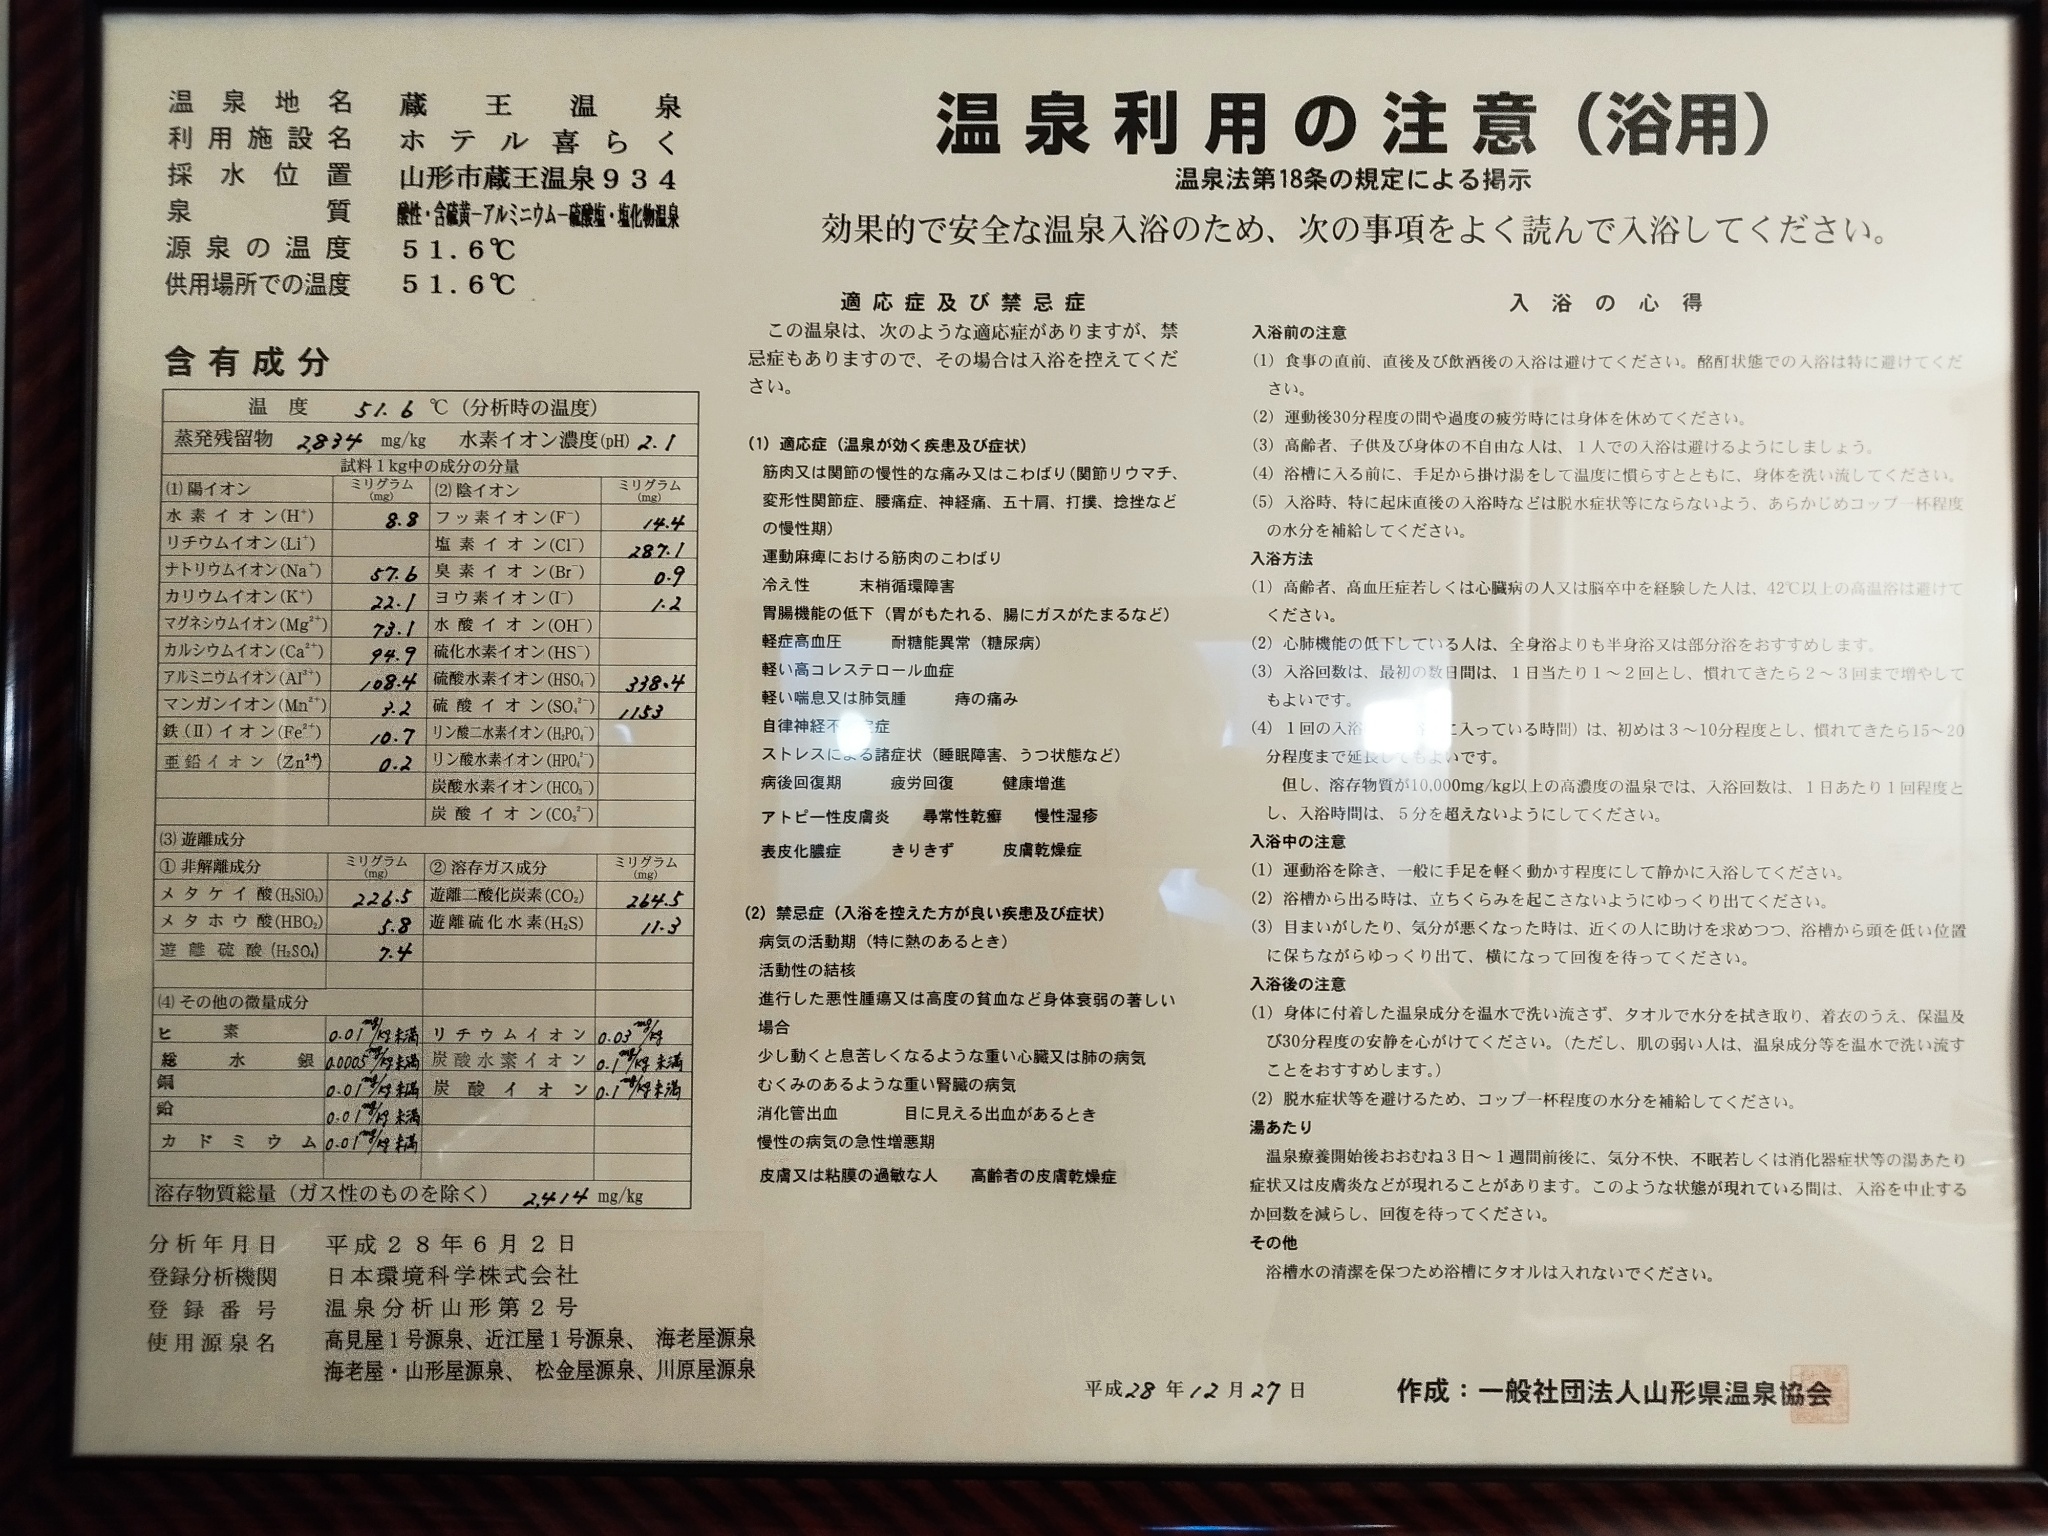 温泉地名 蔵王温泉
利用施設名 ホテル喜らく
採水位置 山形市蔵王温泉934
泉質 酸性・含硫黄-アルミニウム-硫酸塩・塩化物温泉
源泉の温度 51.6℃
供用場所での温度 51.6℃
含有成分
温度 51.6 ℃(分析時の温度)
蒸発残留物 2,834 mg/kg 水素イオン濃度(pH) 2.1
試料1kg中の成分の分量
(1) 陽イオン ミリグラム(mg) (2) 陰イオン ミリグラム(mg)
水素イオン(H⁺) 8.8 フッ素イオン(F⁻) 14.4
リチウムイオン(Li⁺) 塩素イオン(Cl⁻) 287.1
ナトリウムイオン(Na⁺) 57.6 臭素イオン(Br⁻) 0.9
カリウムイオン(K⁺) 22.1 ヨウ素イオン(I⁻) 1.2
マグネシウムイオン(Mg²⁺) 73.1 水酸イオン(OH⁻)
カルシウムイオン(Ca²⁺) 94.9 硫化水素イオン(HS⁻)
アルミニウムイオン(Al³⁺) 108.4 硫酸水素イオン(HSO₄⁻) 338.4
マンガンイオン(Mn²⁺) 3.2 硫酸イオン(SO₄²⁻) 1153
鉄(II)イオン(Fe²⁺) 10.7 リン酸二水素イオン(H₂PO₄⁻)
亜鉛イオン(Zn²⁺) 0.2 リン酸水素イオン(HPO₄²⁻)
炭酸水素イオン(HCO₃⁻)
炭酸イオン(CO₃²⁻)
(3) 遊離成分
① 非解離成分 ミリグラム(mg) ② 溶存ガス成分 ミリグラム(mg)
メタケイ酸(H₂SiO₃) 226.5 遊離二酸化炭素(CO₂) 264.5
メタホウ酸(HBO₂) 5.8 遊離硫化水素(H₂S) 11.3
遊離硫酸(H₂SO₄) 7.4
(4) その他の微量成分
ヒ素 0.01mg/kg未満 リチウムイオン 0.03mg/kg
総水銀 0.0005mg/kg未満 炭酸水素イオン 0.1mg/kg未満
銅 0.01mg/kg未満 炭酸イオン 0.1mg/kg未満
鉛 0.01mg/kg未満
カドミウム 0.01mg/kg未満
溶存物質総量(ガス性のものを除く) 2,414 mg/kg
分析年月日 平成28年6月2日
登録分析機関 日本環境科学株式会社
登録番号 温泉分析山形第2号
使用源泉名 高見屋1号源泉、近江屋1号源泉、海老屋源泉
海老屋・山形屋源泉、松金屋源泉、川原屋源泉
温泉利用の注意(浴用)
温泉法第18条の規定による掲示
効果的で安全な温泉入浴のため、次の事項をよく読んで入浴してください。
適応症及び禁忌症
この温泉は、次のような適応症がありますが、禁
忌症もありますので、その場合は入浴を控えてくだ
さい。
(1) 適応症(温泉が効く疾患及び症状)
筋肉又は関節の慢性的な痛み又はこわばり(関節リウマチ、
変形性関節症、腰痛症、神経痛、五十肩、打撲、捻挫など
の慢性期)
運動麻痺における筋肉のこわばり
冷え性 末梢循環障害
胃腸機能の低下(胃がもたれる、腸にガスがたまるなど)
軽症高血圧 耐糖能異常(糖尿病)
軽い高コレステロール血症
軽い喘息又は肺気腫 痔の痛み
自律神経不 定症
ストレスによる諸症状(睡眠障害、うつ状態など)
病後回復期 疲労回復 健康増進
アトピー性皮膚炎 尋常性乾癬 慢性湿疹
表皮化膿症 きりきず 皮膚乾燥症
(2) 禁忌症(入浴を控えた方が良い疾患及び症状)
病気の活動期(特に熱のあるとき)
活動性の結核
進行した悪性腫瘍又は高度の貧血など身体衰弱の著しい
場合
少し動くと息苦しくなるような重い心臓又は肺の病気
むくみのあるような重い腎臓の病気
消化管出血 目に見える出血があるとき
慢性の病気の急性増悪期
皮膚又は粘膜の過敏な人 高齢者の皮膚乾燥症
入浴の心得
入浴前の注意
(1) 食事の直前、直後及び飲酒後の入浴は避けてください。酩酊状態での入浴は特に避けてくだ
さい。
(2) 運動後30分程度の間や過度の疲労時には身体を休めてください。
(3) 高齢者、子供及び身体の不自由な人は、1人での入浴は避けるようにしましょう。
(4) 浴槽に入る前に、手足から掛け湯をして温度に慣らすとともに、身体を洗い流してください。
(5) 入浴時、特に起床直後の入浴時などは脱水症状等にならないよう、あらかじめコップ一杯程度
の水分を補給してください。
入浴方法
(1) 高齢者、高血圧症若しくは心臓病の人又は脳卒中を経験した人は、42℃以上の高温浴は避けて
ください。
(2) 心肺機能の低下している人は、全身浴よりも半身浴又は部分浴をおすすめします。
(3) 入浴回数は、最初の数日間は、1日当たり1~2回とし、慣れてきたら2~3回まで増やして
もよいです。
(4) 1回の入浴 に入っている時間)は、初めは3~10分程度とし、慣れてきたら15~20
分程度まで延長してもよいです。
但し、溶存物質が10,000mg/kg以上の高濃度の温泉では、入浴回数は、1日あたり1回程度と
し、入浴時間は、5分を超えないようにしてください。
入浴中の注意
(1) 運動浴を除き、一般に手足を軽く動かす程度にして静かに入浴してください。
(2) 浴槽から出る時は、立ちくらみを起こさないようにゆっくり出てください。
(3) 目まいがしたり、気分が悪くなった時は、近くの人に助けを求めつつ、浴槽から頭を低い位置
に保ちながらゆっくり出て、横になって回復を待ってください。
入浴後の注意
(1) 身体に付着した温泉成分を温水で洗い流さず、タオルで水分を拭き取り、着衣のうえ、保温及
び30分程度の安静を心がけてください。(ただし、肌の弱い人は、温泉成分等を温水で洗い流す
ことをおすすめします。)
(2) 脱水症状等を避けるため、コップ一杯程度の水分を補給してください。
湯あたり
温泉療養開始後おおむね3日~1週間前後に、気分不快、不眠若しくは消化器症状等の湯あたり
症状又は皮膚炎などが現れることがあります。このような状態が現れている間は、入浴を中止する
か回数を減らし、回復を待ってください。
その他
浴槽水の清潔を保つため浴槽にタオルは入れないでください。
平成28年12月27日 作成:一般社団法人山形県温泉協会